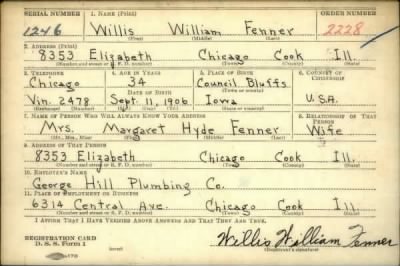 SERIAL NUMBER 1. NAME (Print) ORDER NUMBER
1246 Willis William Fenner 2228
(First) (Middle) (Last)
2. ADDRESS (Print)
8353 Elizabeth Chicago Cook Ill.
(Number and street or R. F. D. number) (Town) (County) (State)
3. TELEPHONE 4. AGE IN YEARS 5. PLACE OF BIRTH 6. COUNTRY OF CITIZENSHIP
Chicago 34 Council Bluffs
DATE OF BIRTH (Town or county)
Vin. 2478 Sept. 11, 1906 Iowa U.S.A.
(Exchange) (Number) (Mo.) (Day) (Yr.) (State or country)
7. NAME OF PERSON WHO WILL ALWAYS KNOW YOUR ADDRESS 8. RELATIONSHIP OF THAT PERSON
Mrs. Margaret Hyde Fenner Wife
(Mr., Mrs., Miss) (First) (Middle) (Last)
9. ADDRESS OF THAT PERSON
8353 Elizabeth Chicago Cook Ill.
(Number and street or R. F. D. number) (Town) (County) (State)
10. EMPLOYER'S NAME
George Hill Plumbing Co.
11. PLACE OF EMPLOYMENT OR BUSINESS
6314 Central Ave. Chicago Cook Ill.
(Number and street or R. F. D. number) (Town) (County) (State)
I AFFIRM THAT I HAVE VERIFIED ABOVE ANSWERS AND THAT THEY ARE TRUE.
REGISTRATION CARD
D. S. S. Form 1 Willis William Fenner
(Registrant's signature)